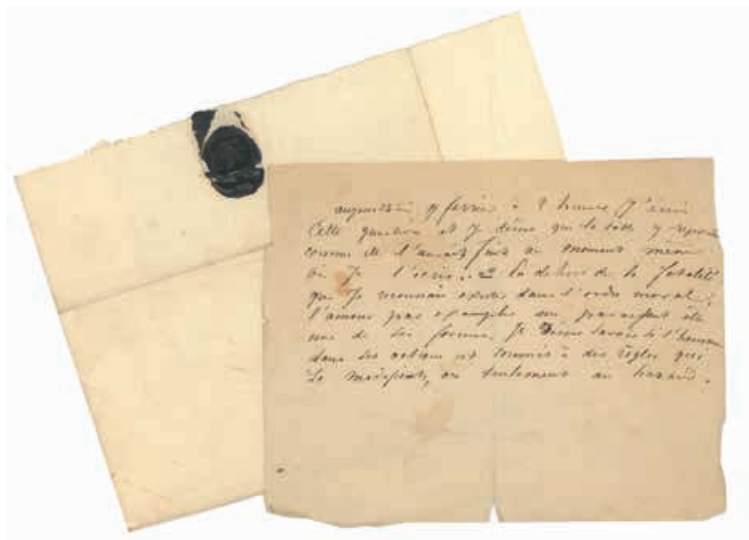 aujourd'hui 9 février à 2 heures j'écris
Cette question et je désire que la table y réponde
comme si l'avait fait au moment même
où je l'écris : En dehors de la fatalité
que je reconnais exister dans l'ordre moral,
l'amour par exemple me paraissant être
une de ses formes, Je Désire savoir si l'homme
dans ses actions est soumis à des règles qui
le ou seulement au hasard.